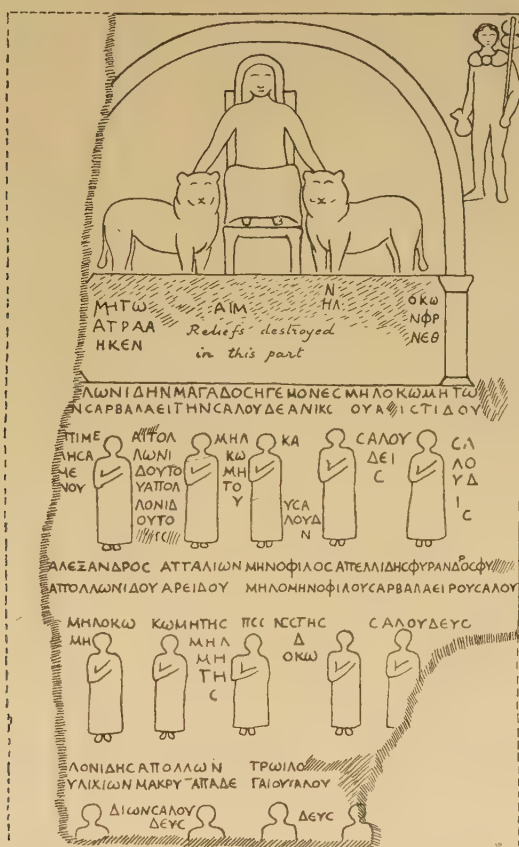 ΜΗΤΩ ΑΙΜ Ν ΟΚΩ
ΑΤΡΑΑ ΗΛ ΝΦΡ
ΗΚΕΝ ΝΕΘ
Reliefs destroyed
in this part
ΛΩΝΙΔΗΝΜΑΓΑΔΟCΗΓΕΜΟΝΕCΜΗΛΟΚΩΜΗΤΩ
ΝCΑΡΒΑΛΑΕΙΤΗΝCΑΛΟΥΔΕΑΝΙΚ ΟΥΑ ΙCΤΙΔΟΥ
ΤΙΜΕ
ΛΗCΑ
ΜΕ
ΝΟΥ
ΑΠΟΛ
ΛΩΝΙ
ΔΟΥΤΟ
ΥΑΠΟΛ
ΛΟΝΙΔ
ΟΥΤΟ
ΜΗΛ
ΚΩ
ΜΗ
ΤΟ
Υ
ΚΑ
ΥCΑ
ΛΟΥΔ
Ν
CΑΛΟΥ
ΔΕΙ
C
CΑΛ
ΛΟ
ΥΔ
Ι
C
ΑΛΕΞΑΝΔΡΟC ΑΤΤΑΛΙΩΝ ΜΗΝΟΦΙΛΟC ΑΠΕΛΛΙΔΗCΦΥΡΑΝΔΟCΦΥ
ΑΠΟΛΛΩΝΙΔΟΥ ΑΡΕΙΔΟΥ ΜΗΛΟΜΗΝΟΦΙΛΟΥCΑΡΒΑΛΑΕΙΡΟΥCΑΛΟΥ
ΜΗΛΟΚΩ ΚΩΜΗΤΗC ΝΕCΤΗC CΑΛΟΥΔΕΥC
ΜΗ
ΜΗΛ
ΜΗ
ΤΗ
C
Δ
ΟΚΩ
ΛΟΝΙΔΗCΑΠΟΛΛΩΝ ΤΡΩΙΛΟ
ΥΛΙΧΙΩΝ ΜΑΚΡΥ ΑΠΑΔΕ ΓΑΙΟΥCΑΛΟΥ
ΔΙΩΝCΑΛΟΥ
ΔΕΥC
ΔΕΥC